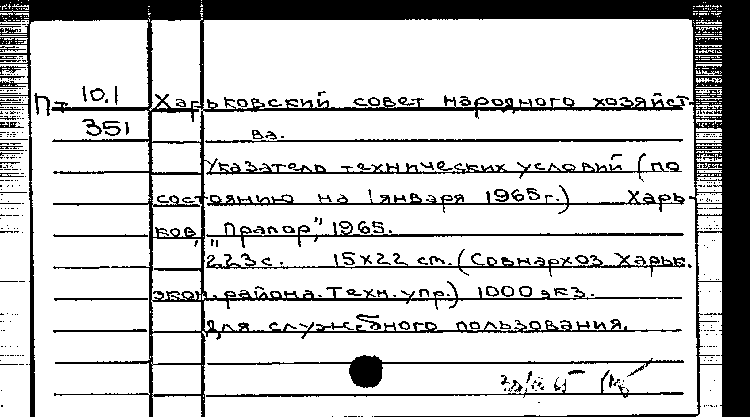 П-10.1 Харьковский совет народного хозяйст-
351 ва.
Указатель технических условий (по
состоянию на 1 января 1965г.) Харь-
ков, „Прапор," 1965.
223 с. 15х22 см. (Совнархоз Харьк.
экон. района. Техн. упр.) 1000 экз.
Для служебного пользования.